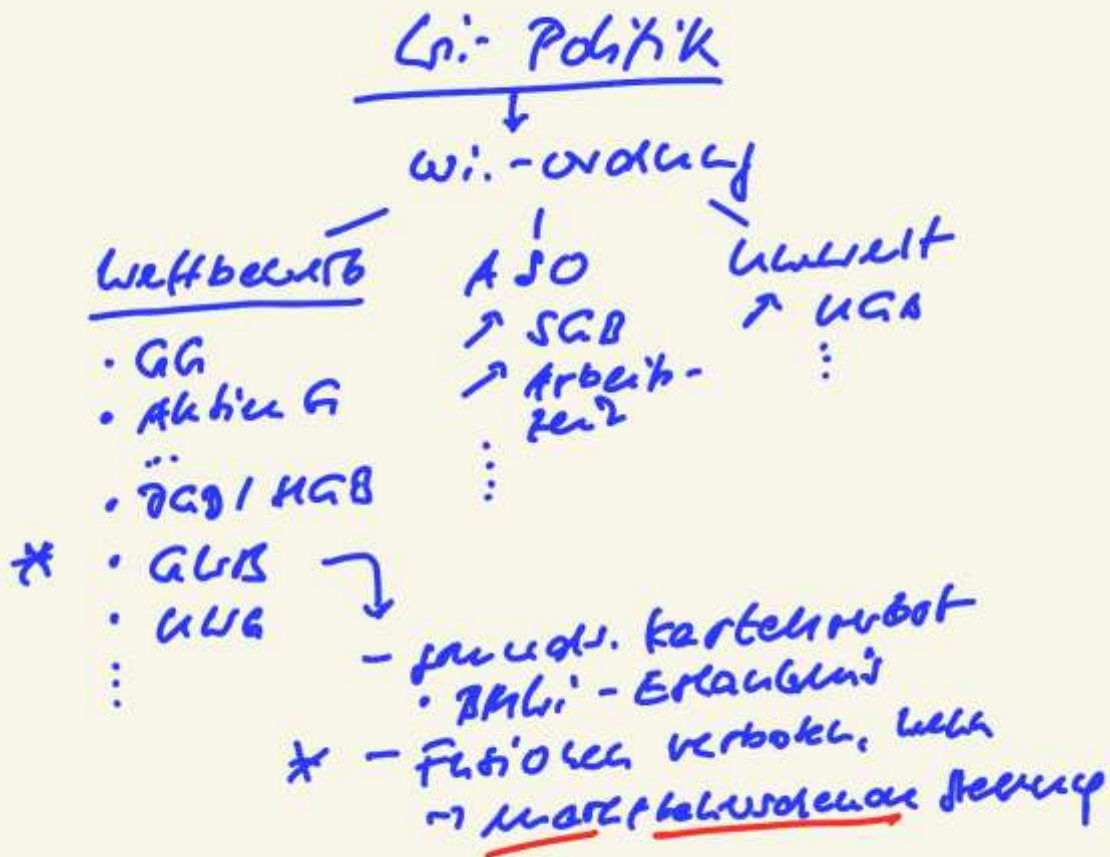 Wi.- Politik
Wi.-ordnung
Wettbewerb
• GG
• Aktien G
...
• BGB / HGB
* • GWB
• UWG
ASO
↗ SGB
↗ Arbeits-
zeit
Umwelt
↗ UGB
- grunds. Kartellverbot
• BMWi - Erlaubnis
* - Fusionen verboten, wenn
→ marktbeherrschende Stellung